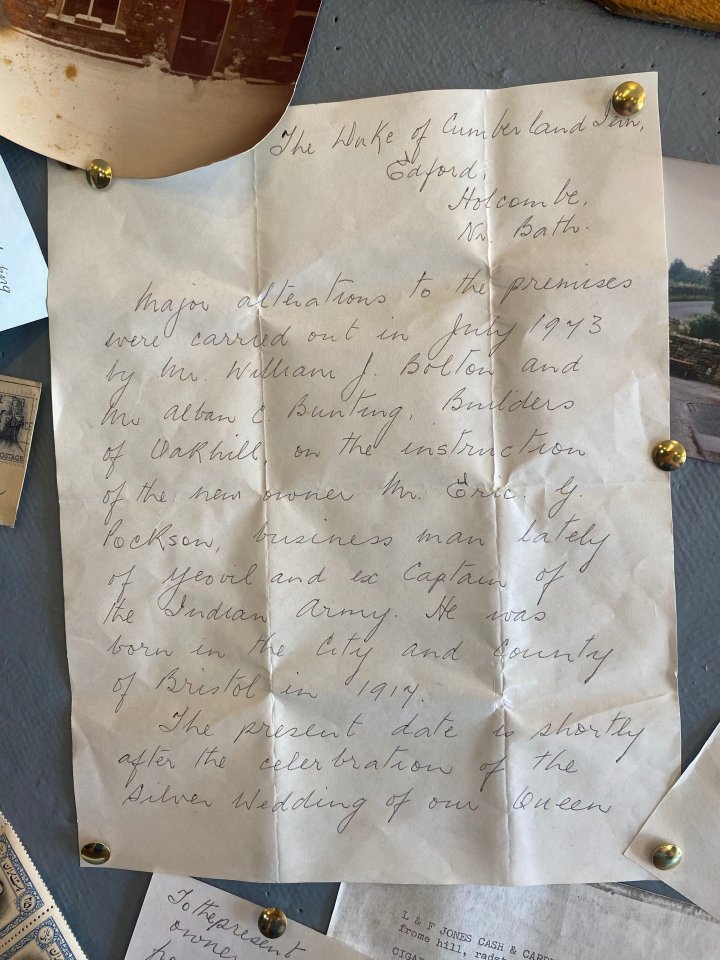 The Duke of Cumberland Inn,
Edford,
Holcombe,
Nr. Bath.
Major alterations to the premises
were carried out in July 1973
by Mr. William J. Bolton and
Mr Alban E. Bunting, Builders
of Oakhill, on the instruction
of the new owner Mr. Eric. G.
Pockson, business man lately
of Yeovil and ex Captain of
the Indian Army. He was
born in the City and County
of Bristol in 1917.
The present date is shortly
after the celerbration of the
Silver Wedding of our Queen
POSTAGE
To the present
owner
L & F JONES CASH &
frome hill,